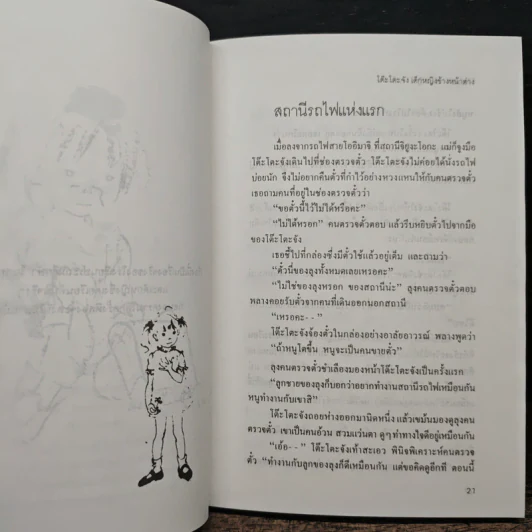 โต๊ะโตะจัง เด็กหญิงข้างหน้าต่าง
สถานีรถไฟแห่งแรก
เมื่อลงจากรถไฟสายโออิมาจิ ที่สถานีจิยูงะโอกะ แม่ก็จูงมือ
โต๊ะโตะจังเดินไปที่ช่องตรวจตั๋ว โต๊ะโตะจังไม่ค่อยได้นั่งรถไฟ
บ่อยนัก จึงไม่อยากคืนตั๋วที่กำไว้อย่างหวงแหนให้กับคนตรวจตั๋ว
เธอถามคนที่อยู่ในช่องตรวจตั๋วว่า
“ขอตั๋วนี้ไว้ไม่ได้หรือคะ”
“ไม่ได้หรอก” คนตรวจตั๋วตอบ แล้วรีบหยิบตั๋วไปจากมือ
ของโต๊ะโตะจัง
เธอชี้ไปที่กล่องซึ่งมีตั๋วใช้แล้วอยู่เต็ม และถามว่า
“ตั๋วนี่ของลุงทั้งหมดเลยเหรอคะ”
“ไม่ใช่ของลุงหรอก ของสถานีน่ะ” ลุงคนตรวจตั๋วตอบ
พลางคอยรับตั๋วจากคนที่เดินออกนอกสถานี
“เหรอคะ- -”
โต๊ะโตะจังจ้องตั๋วในกล่องอย่างอาลัยอาวรณ์ พลางพูดว่า
“ถ้าหนูโตขึ้น หนูจะเป็นคนขายตั๋ว”
ลุงคนตรวจตั๋วชำเลืองมองหน้าโต๊ะโตะจังเป็นครั้งแรก
“ลูกชายของลุงก็บอกว่าอยากทำงานสถานีรถไฟเหมือนกัน
หนูทำงานกับเขาสิ”
โต๊ะโตะจังถอยห่างออกมานิดหนึ่ง แล้วเขม้นมองดูลุงคน
ตรวจตั๋ว เขาเป็นคนอ้วน สวมแว่นตา ดูๆท่าทางใจดีอยู่เหมือนกัน
“เอ้อ- -” โต๊ะโตะจังเท้าสะเอว พินิจพิเคราะห์คนตรวจ
ตั๋ว “ทำงานกับลูกของลุงก็ดีเหมือนกัน แต่ขอคิดดูอีกที ตอนนี้
21